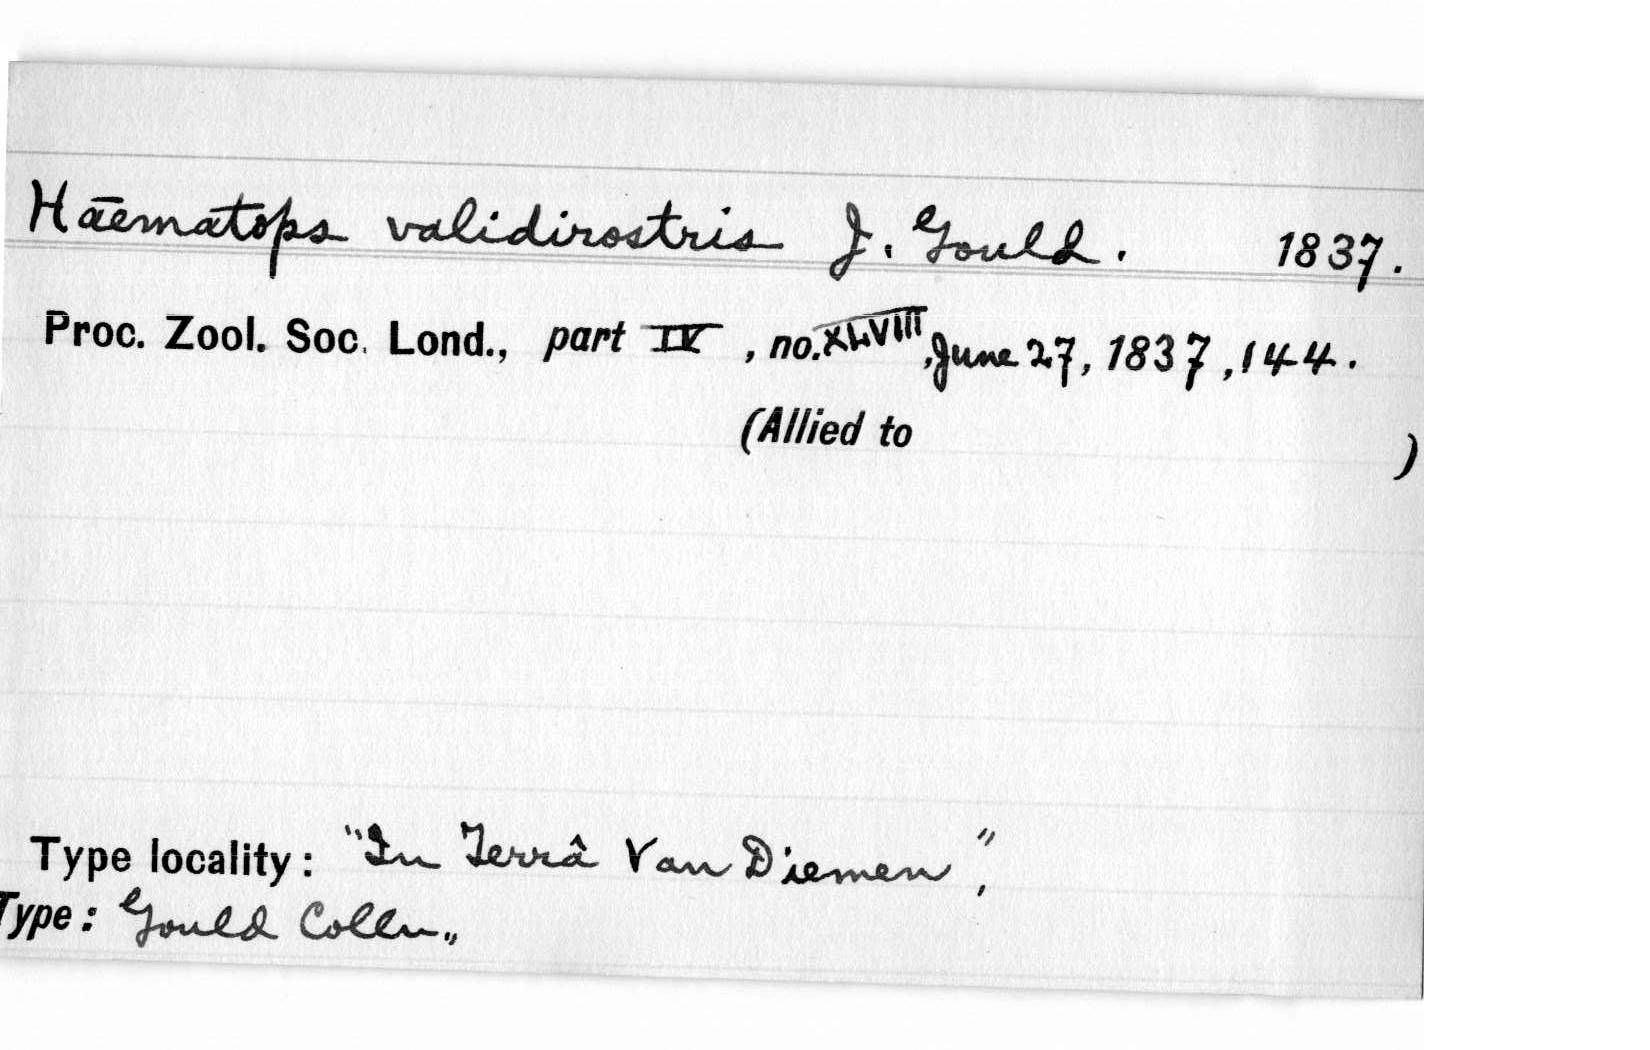 Hāematops validirostris J. Gould. 1837.
Proc. Zool. Soc. Lond., part IV, no. XLVIII, June 27, 1837, 144.
(Allied to )
Type locality: "In Terrâ Van Diemen",
Type: Gould Colln.,